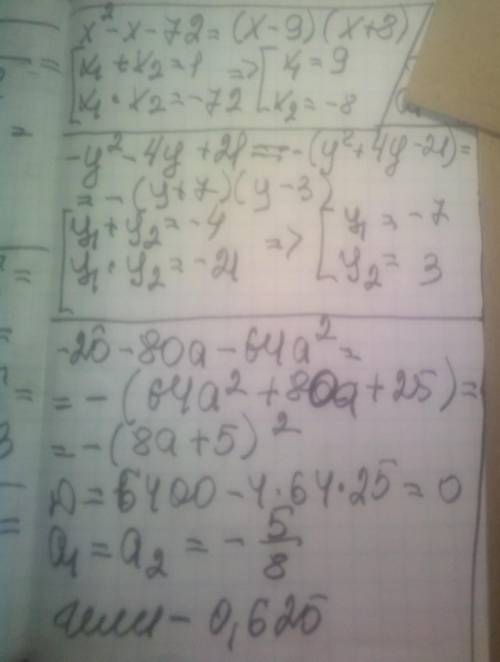 x² - x - 72 = (x - 9)(x + 8)
[x₁ + x₂ = 1 => [x₁ = 9
x₁ · x₂ = -72 x₂ = -8
-y² - 4y + 21 = -(y² + 4y - 21) =
= -(y + 7)(y - 3)
[y₁ + y₂ = -4 => [y₁ = -7
y₁ · y₂ = -21 y₂ = 3
-25 - 80a - 64a² =
= -(64a² + 80a + 25) =
= -(8a + 5)²
D = 6400 - 4 · 64 · 25 = 0
a₁ = a₂ = - 5/8
или - 0,625